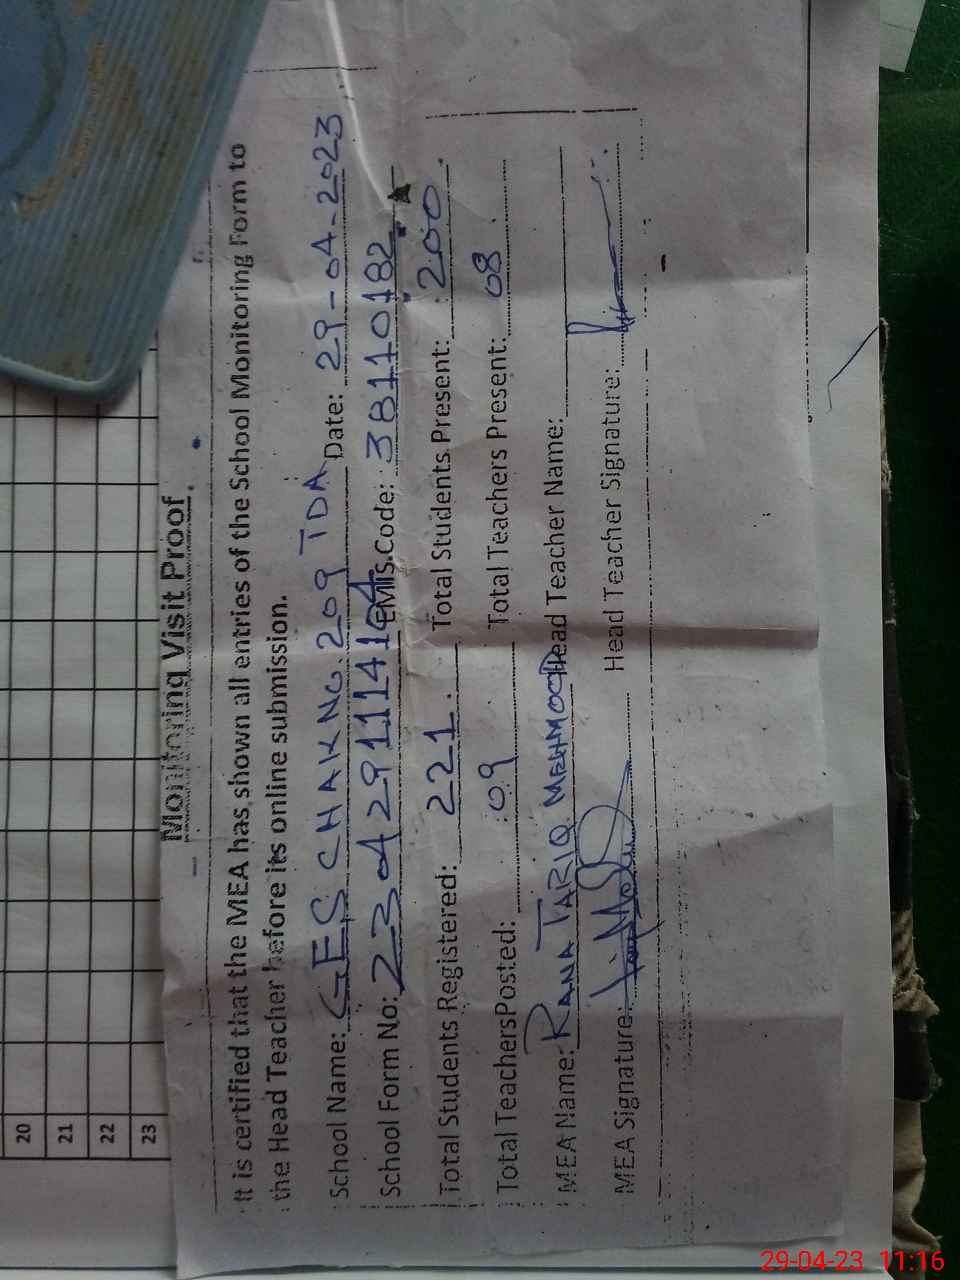 Monitoring Visit Proof
It is certified that the MEA has shown all entries of the School Monitoring Form to
the Head Teacher before its online submission.
School Name: GES CHAK No. 209 TDA Date: 29-04-2023
School Form No: 23042911141 EMIS Code: 38110182
Total Students Registered: 221. Total Students Present: 200
Total Teachers Posted: 09 Total Teachers Present: 08
MEA Name: RANA TARIQ MEHMOOD Head Teacher Name:
MEA Signature: Head Teacher Signature:
20
21
22
23
29-04-23 11:16